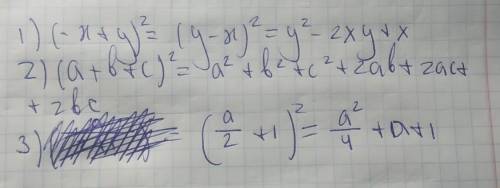 1) (-x+y)² = (y-x)² = y² - 2xy + x
2) (a+b+c)² = a² + b² + c² + 2ab + 2ac +
+ 2bc
3) (a/2 + 1)² = a²/4 + a + 1